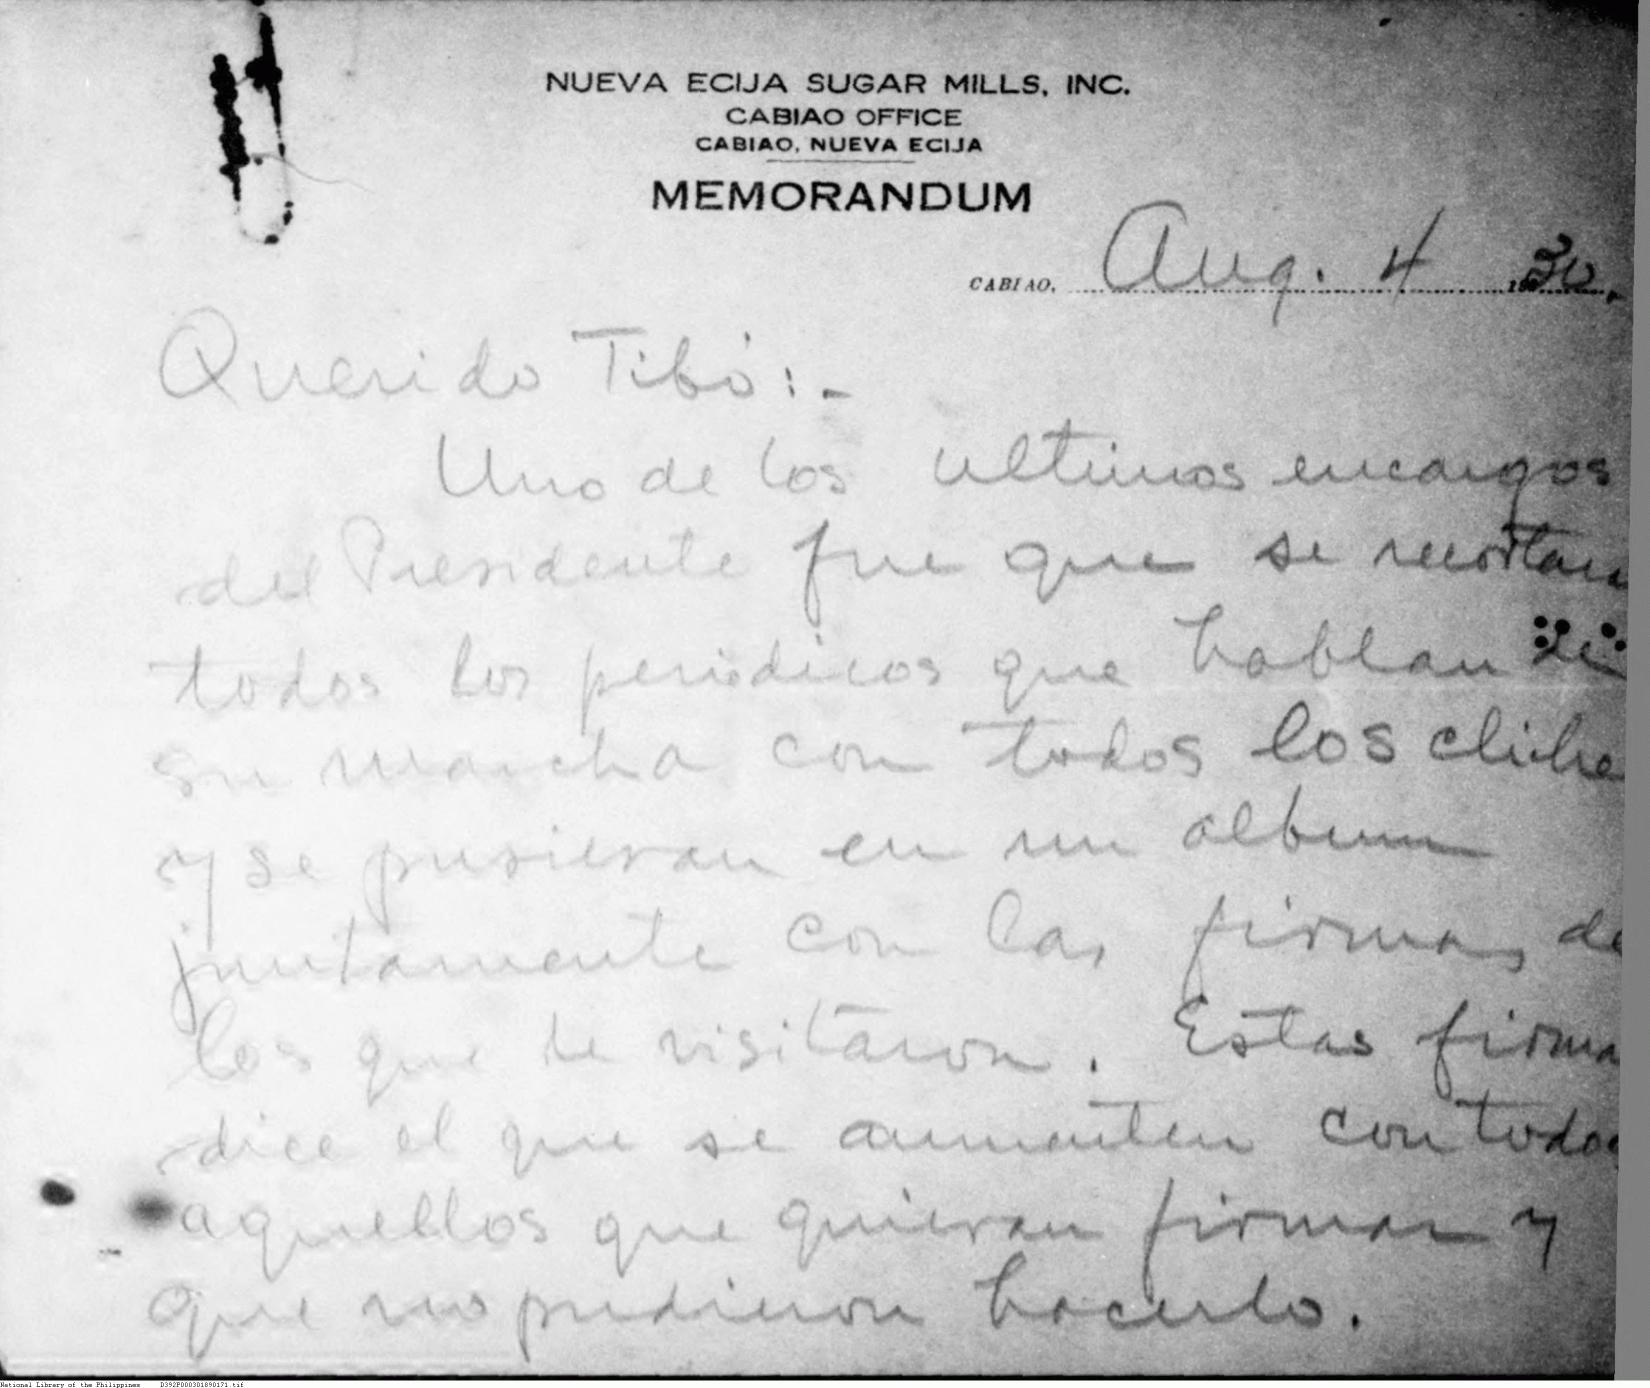 NUEVA ECIJA SUGAR MILLS, INC.
CABIAO OFFICE
CABIAO, NUEVA ECIJA
MEMORANDUM
CABIAO, Aug. 4 1930.
Querido Tibó:-
Uno de los ultimos encargos
del Presidente fue que se recortara
todos los periódicos que hablan de
su marcha con todos los cliche
y se pusieran en un album
juntamente con las firmas de
los que le visitaron. Estas firma
dice el que se aumenten con todos
aquellos que quieran firmar y
que no pudieron hacerlo.
National Library of the Philippines D392F000301890171.tif